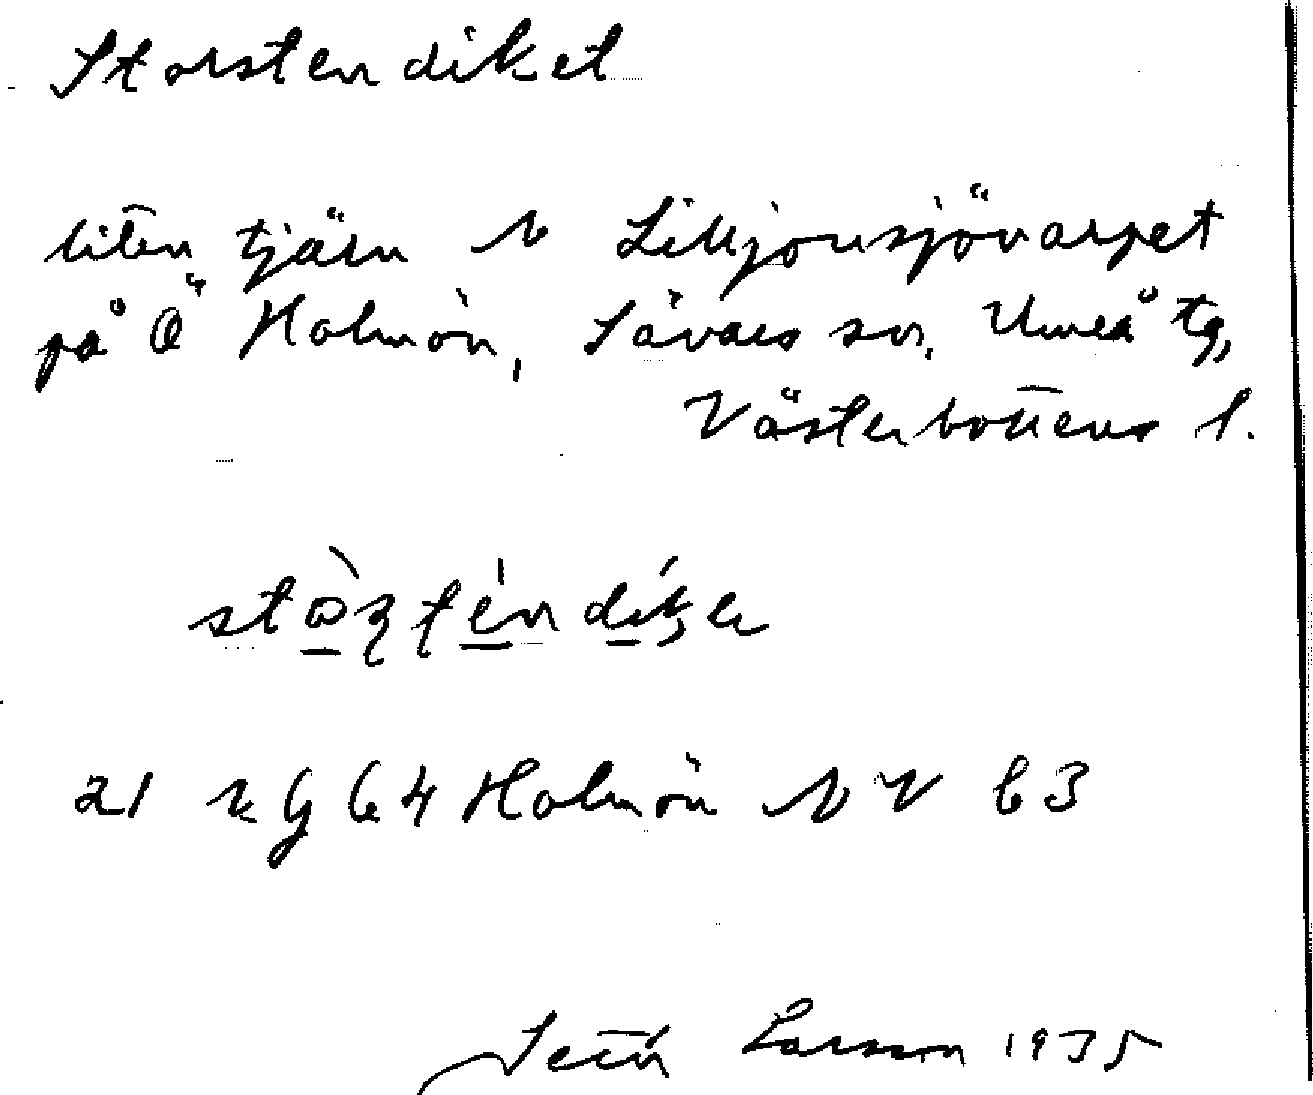 Storstendiket
liten tjärn N Lilljonsjövarpet
på Ö Holmön, Sävars sn, Umeå tg,
Västerbottens l.
21 k G 64 Holmön NV 63
Larsson 1935